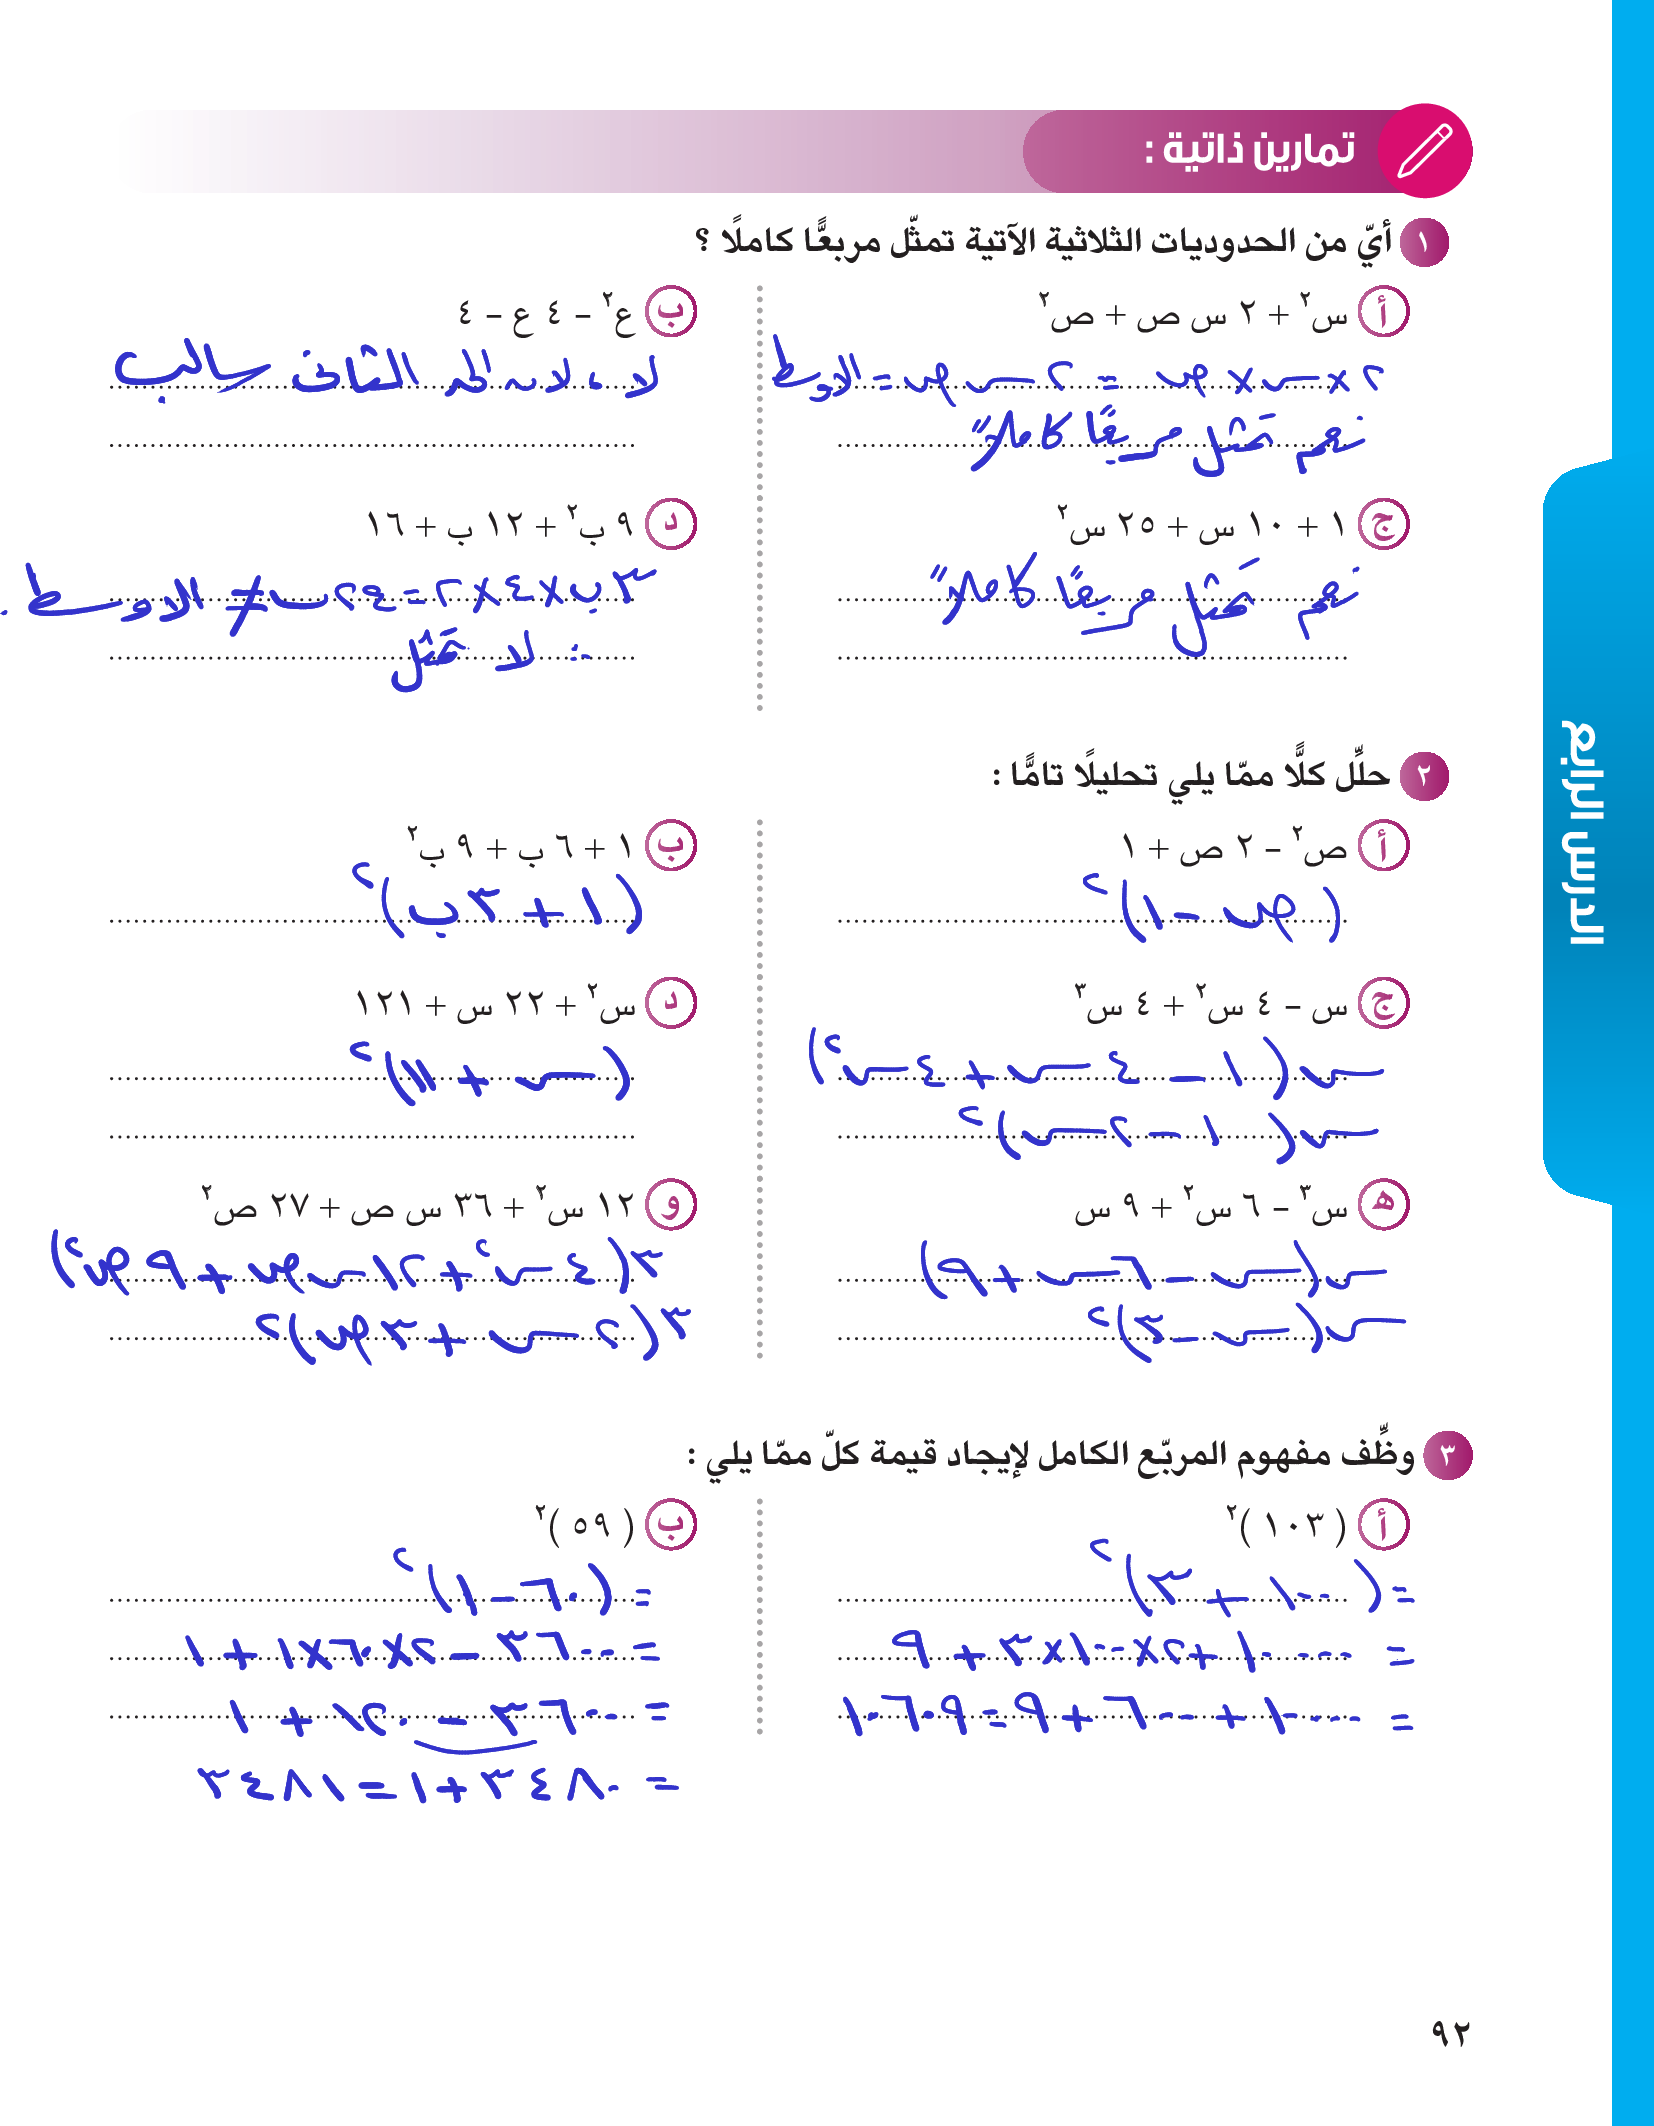 تمارين ذاتية :
١ أيّ من الحدوديات الثلاثية الآتية تمثّل مربعًّا كاملًا ؟
أ س٢ + ٢ س ص + ص٢
٢ × س × ص = ٢ س ص = الاوسط
نعم تمثل مربعًا كاملاً
ب ع٢ – ٤ ع – ٤
لا ، لان الحد الثانى سالب
ج ١ + ١٠ س + ٢٥ س٢
نعم تمثل مربعًا كاملاً
د ٩ ب٢ + ١٢ ب + ١٦
٣ ب × ٤ × ٢ = ٢٤ ب ≠ الاوسط
∴ لا تمثل
٢ حلِّل كلًّا ممّا يلي تحليلًا تامًّا :
أ ص٢ – ٢ ص + ١
( ص – ١ )٢
ب ١ + ٦ ب + ٩ ب٢
( ١ + ٣ ب )٢
ج س – ٤ س٢ + ٤ س٣
س ( ١ – ٤ س + ٤ س٢ )
س ( ١ – ٢ س )٢
د س٢ + ٢٢ س + ١٢١
( س + ١١ )٢
هـ س٣ – ٦ س٢ + ٩ س
س ( س – ٦ س + ٩ )
س ( س – ٣ )٢
و ١٢ س٢ + ٣٦ س ص + ٢٧ ص٢
٣ ( ٤ س٢ + ١٢ س ص + ٩ ص٢ )
٣ ( ٢ س + ٣ ص )٢
٣ وظِّف مفهوم المربّع الكامل لإيجاد قيمة كلّ ممّا يلي :
أ ( ١٠٣ )٢
= ( ١٠٠ + ٣ )٢
= ١٠٠٠٠ + ٢ × ١٠٠ × ٣ + ٩
= ١٠٠٠٠ + ٦٠٠ + ٩ = ١٠٦٠٩
ب ( ٥٩ )٢
= ( ٦٠ – ١ )٢
= ٣٦٠٠ – ٢ × ٦٠ × ١ + ١
= ٣٦٠٠ – ١٢٠ + ١
= ٣٤٨٠ + ١ = ٣٤٨١
الدرس الرابع
٩٢